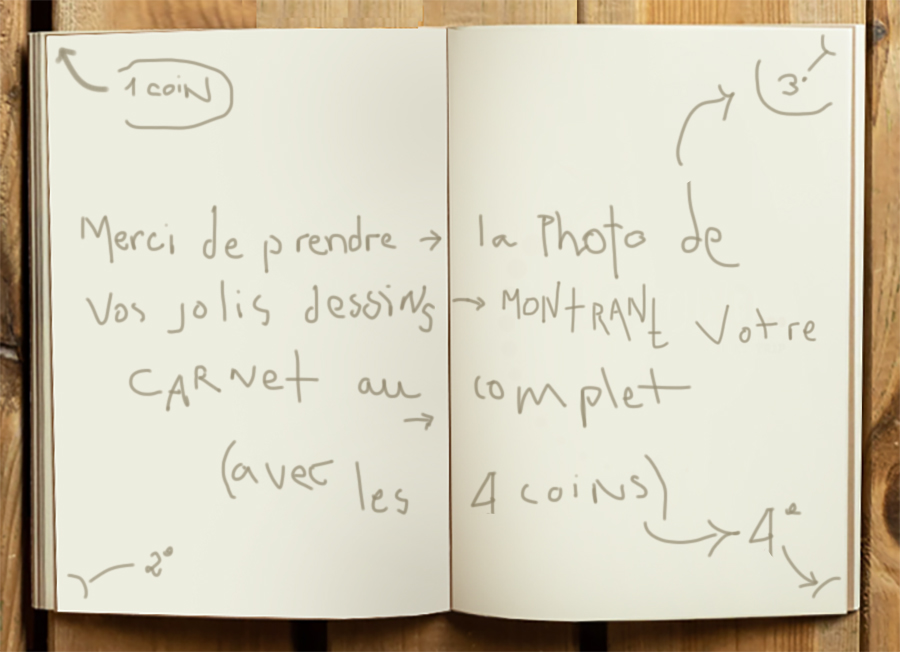 1 coin
3.
Merci de prendre → la Photo de
vos jolis dessins → MONTRANT votre
CARNet au → complet
(avec les 4 coins)
2°
4e